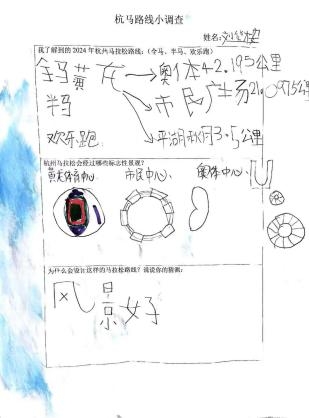 杭马路线小调查
姓名:
我了解到的2024年杭州马拉松路线:(全马、半马、欢乐跑)
全马 黄龙→奥体42.195公里
半马 市民广场21.0975公里
欢乐跑 平湖秋月3.5公里
杭州马拉松会经过哪些标志性景观?
黄龙体育中心、 市民中心、 奥体中心、
为什么会设计这样的马拉松路线?说说你的猜测:
风景好